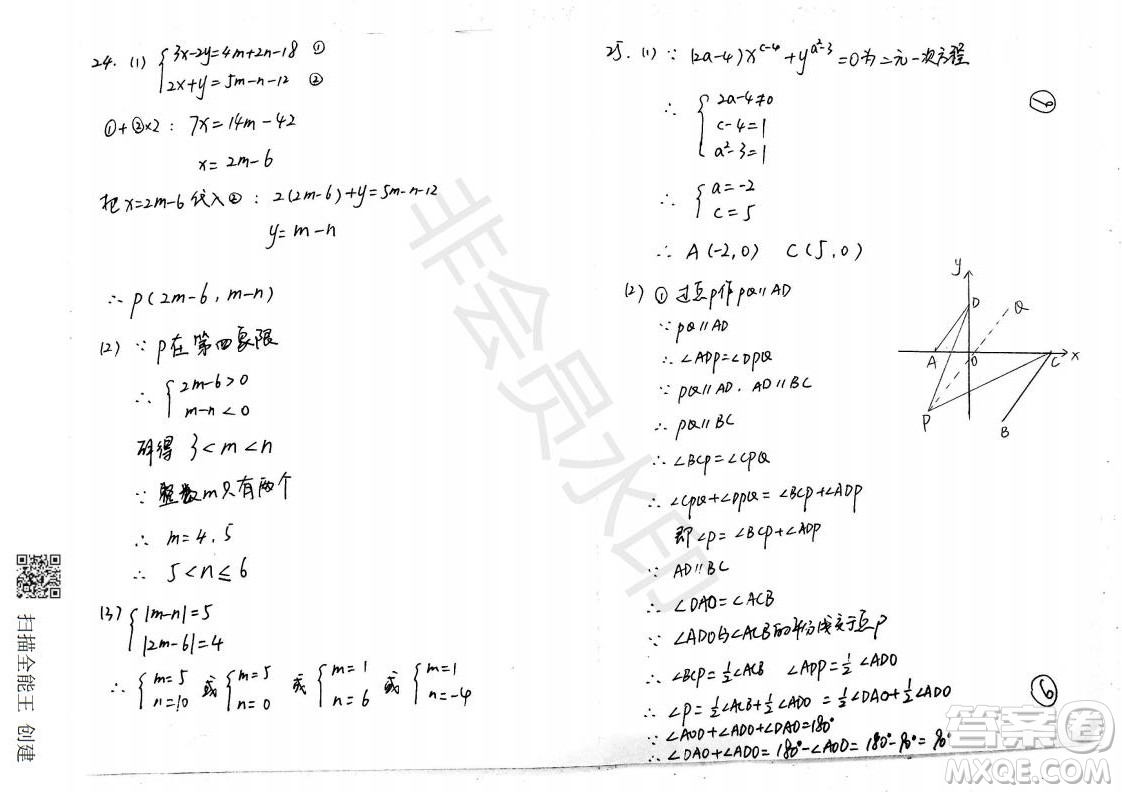 24. (1) { 3x-2y=4m+2n-18 ①
2x+y=5m-n-12 ②
①+②×2: 7x=14m-42
x=2m-6
把x=2m-6代入②: 2(2m-6)+y=5m-n-12
y=m-n
∴ P(2m-6, m-n)
(2) ∵ P在第四象限
∴ { 2m-6>0
m-n<0
解得 3<m<n
∵ 整数m只有两个
∴ m=4,5
∴ 5<n≤6
(3) { |m-n|=5
|2m-6|=4
∴ { m=5 或 { m=5 或 { m=1 或 { m=1
n=10 n=0 n=6 n=-4
25. (1) ∵ (2a-4)x^{c-4}+y^{a²-3}=0为二元一次方程
∴ { 2a-4≠0
c-4=1
a²-3=1
∴ { a=-2
c=5
∴ A(-2,0) C(5,0)
(2) ① 过点P作PQ∥AD
∵ PQ∥AD
∴ ∠ADP=∠DPQ
∵ PQ∥AD, AD∥BC
∴ PQ∥BC
∴ ∠BCP=∠CPQ
∴ ∠CPQ+∠DPQ=∠BCP+∠ADP
即∠P=∠BCP+∠ADP
∵ AD∥BC
∴ ∠DAO=∠ACB
∵ ∠ADO与∠ACB的平分线交于点P
∴ ∠BCP=½∠ACB ∠ADP=½∠ADO
∴ ∠P=½∠ACB+½∠ADO=½∠DAO+½∠ADO
∵ ∠AOD+∠ADO+∠DAO=180°
∴ ∠DAO+∠ADO=180°-∠AOD=180°-90°=90°
y
D
Q
A
O
C
x
P
B
⑥
非会员水印
扫描全能王 创建
答案圈
MXQE.COM